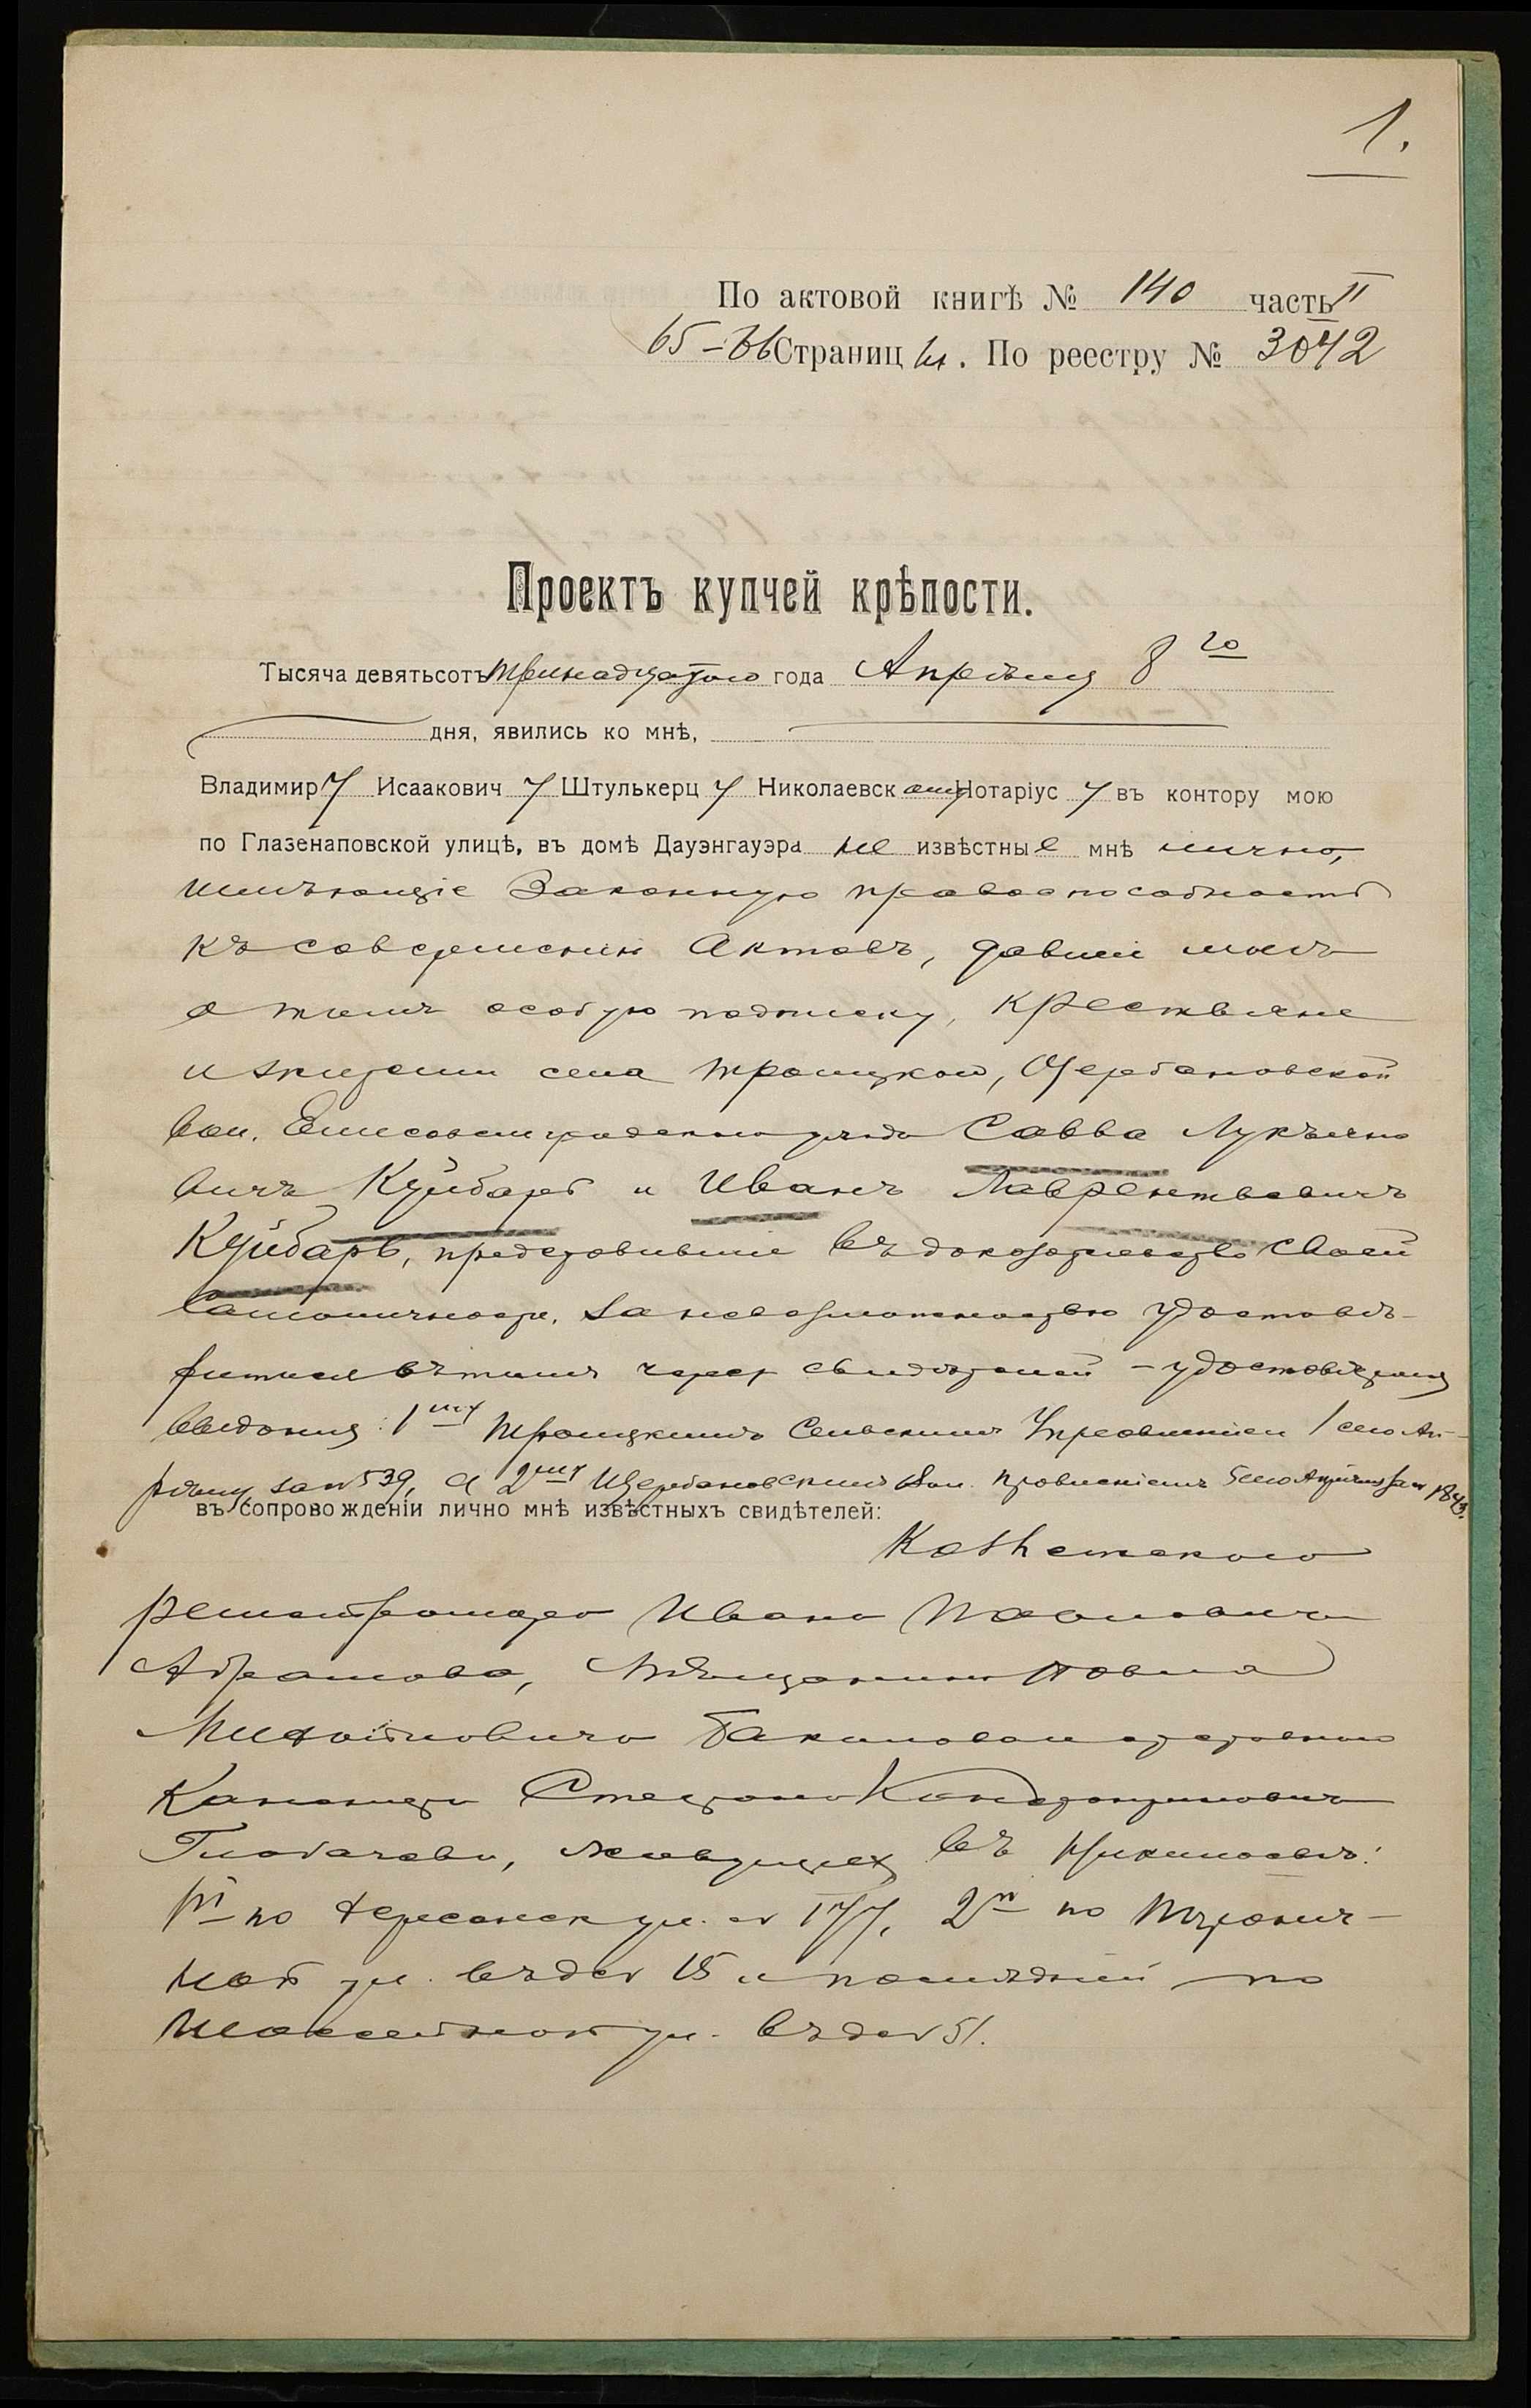 1.
По актовой книгѣ № 140 часть II
65–66 Страницы. По реестру № 3042
Проектъ купчей крѣпости.
Тысяча девятьсотъ тринадцатаго года Апрѣля 8го
дня, явились ко мнѣ,
Владимиру Исаакович у Штулькерц у Николаевскому Нотаріус у въ контору мою
по Глазенаповской улицѣ, въ домѣ Дауэнгауэра не извѣстные мнѣ лично,
имѣющіе законную правоспособность
къ совершенію актовъ, давшіе мнѣ
о томъ особую подписку, крестьяне
и жители села Троицкаго, Щербановской
вол. Елисаветградскаго уѣзда Савва Лукьяно
вичъ Куйбарь и Иванъ Лаврентьевичъ
Куйбарь, представившіе въ доказательство своей
самоличности, за невозможностью удостовѣ-
риться въ томъ черезъ свидѣтелей – удостовѣренія
выданныя: 1му Троицкимъ Сельскимъ Управленіемъ 1 сего Ап-
рѣля за № 539, а 2му Щербановскимъ Вол. Правленіемъ 5 сего Апрѣля за №
въ сопровожденіи лично мнѣ извѣстныхъ свидѣтелей:
Коллежскаго
регистратора Ивана Павловича
Абрамова, мѣщанина Павла
Михайловича и отставного
Степана Кондратовича
Глобачева, живущихъ въ Николаевѣ:
1й по Херсонск ул. № 177, 2й по
ной ул. въ д № 15 и послѣдній по
ул. въ д № 51.